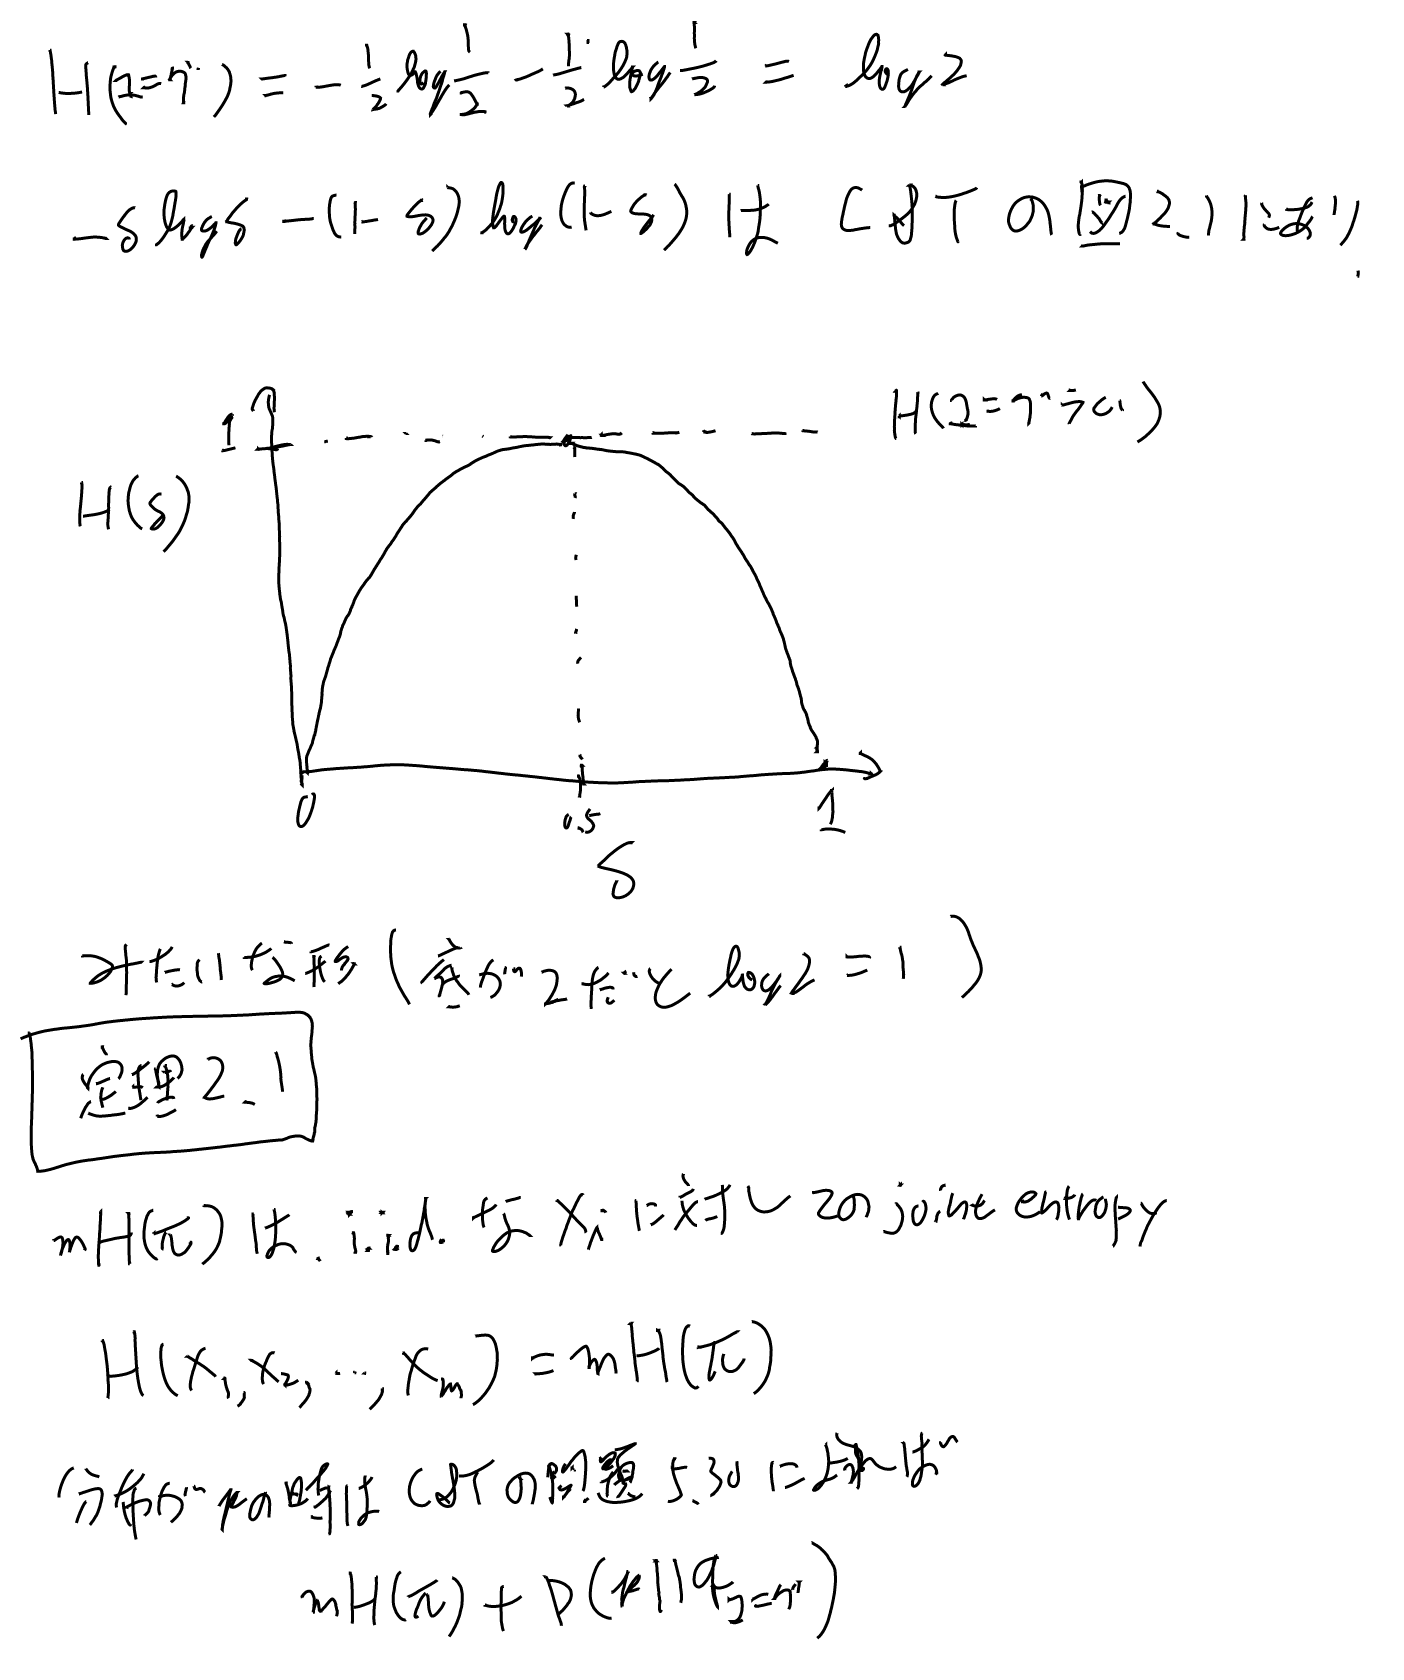 H(ユニグ) = -1/2 log 1/2 - 1/2 log 1/2 = log2
-δlogδ -(1-δ)log(1-δ)は C&Tの図2.1にあり.
1
H(ユニグラム)
H(δ)
0 0.5 1
δ
みたいな形(底が2だとlog2=1)
定理2.1
mH(π)は, i.i.d.なXiに対しての joint entropy
H(X1,X2,…,Xm)=mH(π)
分布がpの時はC&Tの問題5.30によれば
mH(π)+D(p||qユニグ)